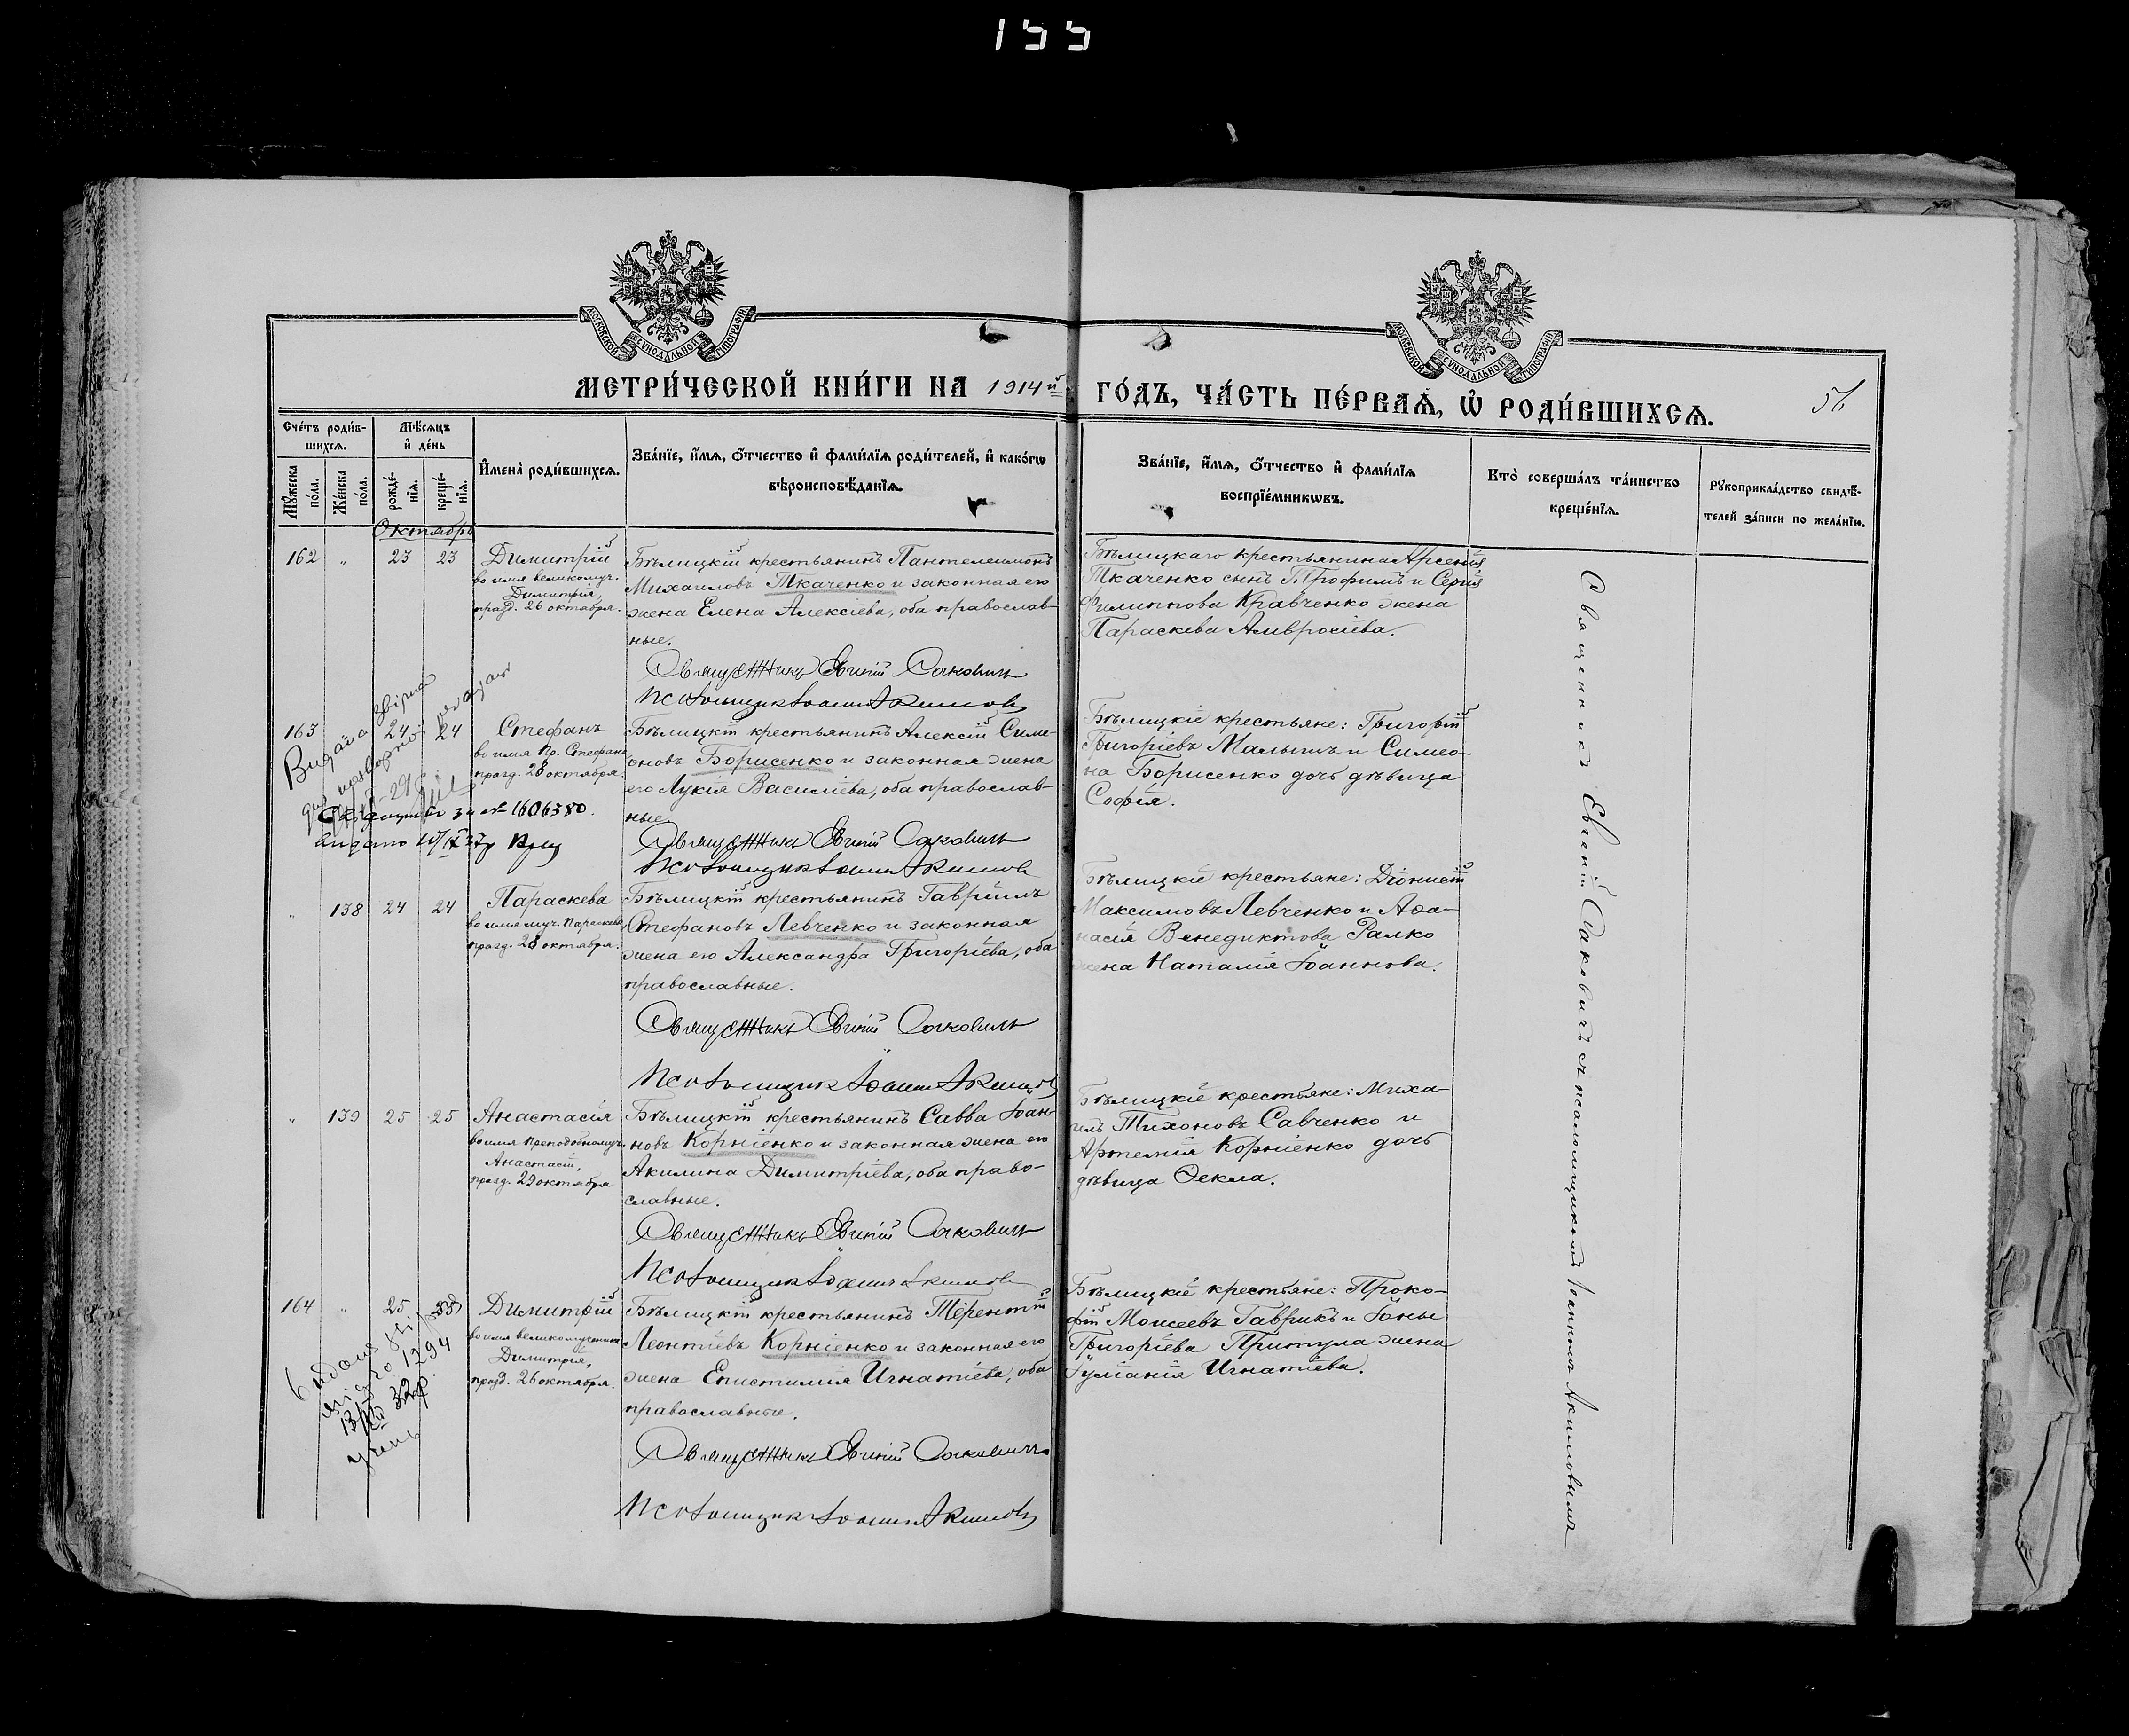 155
МОСКОВСКОЙ СѴНОДАЛЬНОЙ ТИПОГРАФІИ
МОСКОВСКОЙ СѴНОДАЛЬНОЙ ТИПОГРАФІИ
МЕТРИ́ЧЕСКОЙ КНИ́ГИ НА 1914й ГО́ДЪ, ЧА́СТЬ ПЕ́РВАѦ, Ѡ РОДИ́ВШИХСѦ.
56
Сче́тъ роди́в-
шихсѧ.
Мѣ́сѧцъ
и́ де́нь
Мꙋ́жеска
по́ла.
Же́нска
по́ла.
рожде́-
нїѧ.
креще́-
нїѧ.
И҆мена̀ роди́вшихсѧ.
Зва́нїе, и҆́мѧ, ѻ҆́тчество и҆ фами́лїѧ роди́телей, и҆ како́гѡ
вѣроисповѣ́данїѧ.
Зва́нїе, и҆́мѧ, ѻ҆́тчество и҆ фами́лїѧ
воспрїе́мникѡвъ.
Кто̀ соверша́лъ та́инство
креще́нїѧ.
Рꙋкоприкла́дство свидѣ́-
телей за́писи по жела́нїю.
Октябрь
162 „ 23 23
Димитрій
во имя великомуч.
Димитрія,
празд. 26 октября.
Бѣлицкій крестьянинъ Пантелеимонъ
Михаиловъ Ткаченко и законная его
жена Елена Алексіева, оба православ-
ные.
Священникъ Евгеній Сакович
Псаломщик Іоанн Акимовъ
Бѣлицкаго крестьянина Арсенія
Ткаченко сынъ Трофимъ и Сергія
Филиппова Кравченко жена
Параскева Амвросіева.
163 24 24
Стефанъ
во имя Пр. Стефана
празд. 28 октября.
Бѣлицкій крестьянинъ Алексій Симе-
оновъ Борисенко и законная жена
его Лукія Василіева, оба православ-
ные.
Священникъ Евгеній Сакович
Псаломщик Іоанн Акимов
Бѣлицкіе крестьяне: Григорій
Григоріевъ Малышъ и Симео-
на Борисенко дочь дѣвица
Софія.
Видана
за № 1606380.
видано
„ 138 24 24
Параскева
во имя муч. Параскевы,
празд. 28 октября.
Бѣлицкій крестьянинъ Гавріилъ
Стефановъ Левченко и законная
жена его Александра Григоріева, оба
православные.
Священникъ Евгеній Сакович
Псаломщик Іоанн Акимов
Бѣлицкіе крестьяне: Діонисій
Максимовъ Левченко и Аѳа-
насія Венедиктова Ралко
жена Наталія Іоаннова.
„ 139 25 25
Анастасія
во имя Преподобномуч.
Анастасіи,
празд. 29 октября
Бѣлицкій крестьянинъ Савва Іоан-
новъ Корніенко и законная жена его
Акилина Димитріева, оба право-
славные.
Священникъ Евгеній Сакович
Псаломщик Іоанн Акимов
Бѣлицкіе крестьяне: Миха-
илъ Тихоновъ Савченко и
Артемія Корніенко дочь
дѣвица Ѳекла.
164 „ 25
Димитрій
во имя великомученика
Димитрія,
празд. 26 октября.
Бѣлицкій крестьянинъ Терентій
Леонтіевъ Корніенко и законная его
жена Епистимія Игнатіева, оба
православные.
Священникъ Евгеній Сакович
Псаломщик Іоанн Акимовъ
Бѣлицкіе крестьяне: Проко-
фій Моисеевъ Гаврикъ и Іоны
Григоріева Притула жена
Іуліанія Игнатіева.
32р.
Священникъ Евгеній Саковичъ съ псаломщикомъ Іоанномъ Акимовымъ